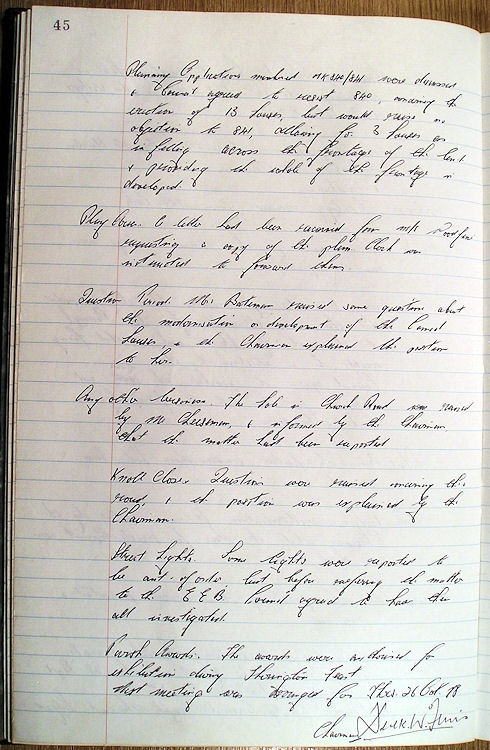 45
Planning Applications numbered 840/841 were discussed
& Council agreed to resist 840, the
erection of 13 houses, but would raise no
objection to 841, allowing for 3 houses as
in filling across the frontage of the land
& providing the whole of the frontage is
developed.
Play Area. A letter had been received from Mrs
requesting a copy of the plan Clerk was
instructed to forward them.
Question Period. Mrs Bateman raised some question about
the modernisation or development of the Council
houses, & the Chairman explained the position
to her.
Any other business. The hole in Church Road was raised
by Mr Cheeseman, & informed by the Chairman
that the matter had been reported
Knoll Close. Questions were raised the
road, & the position was explained by the
Chairman.
Street Lights. Some lights were reported to
be out of order, but before referring the matter
to the E E B Council agreed to have them
all investigated.
Parish Awards. The awards were authorised for
exhibition during Thorington Fest
Next meeting was arranged for Thurs. 26 Oct 78
Chairman